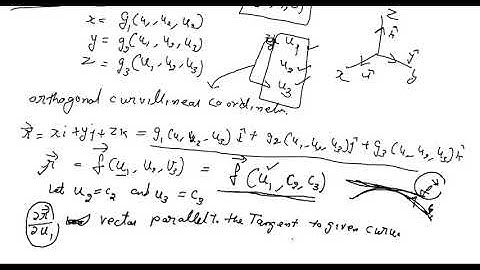 x = g₁(u₁, u₂, u₃)
y = g₂(u₁, u₂, u₃)
z = g₃(u₁, u₂, u₃)
u₁
u₂
u₃
z
x
y
orthogonal curvillinear coordinates.
r⃗ = xi + yj + zk = g₁(u₁, u₂, u₃) î + g₂(u₁, u₂, u₃) ĵ + g₃(u₁, u₂, u₃) k̂
r⃗ = f⃗(u₁, u₂, u₃) = f⃗(u₁, c₂, c₃)
Let u₂ = c₂ and u₃ = c₃
∂r⃗/∂u₁ vector parallel to the Tangent to given curve